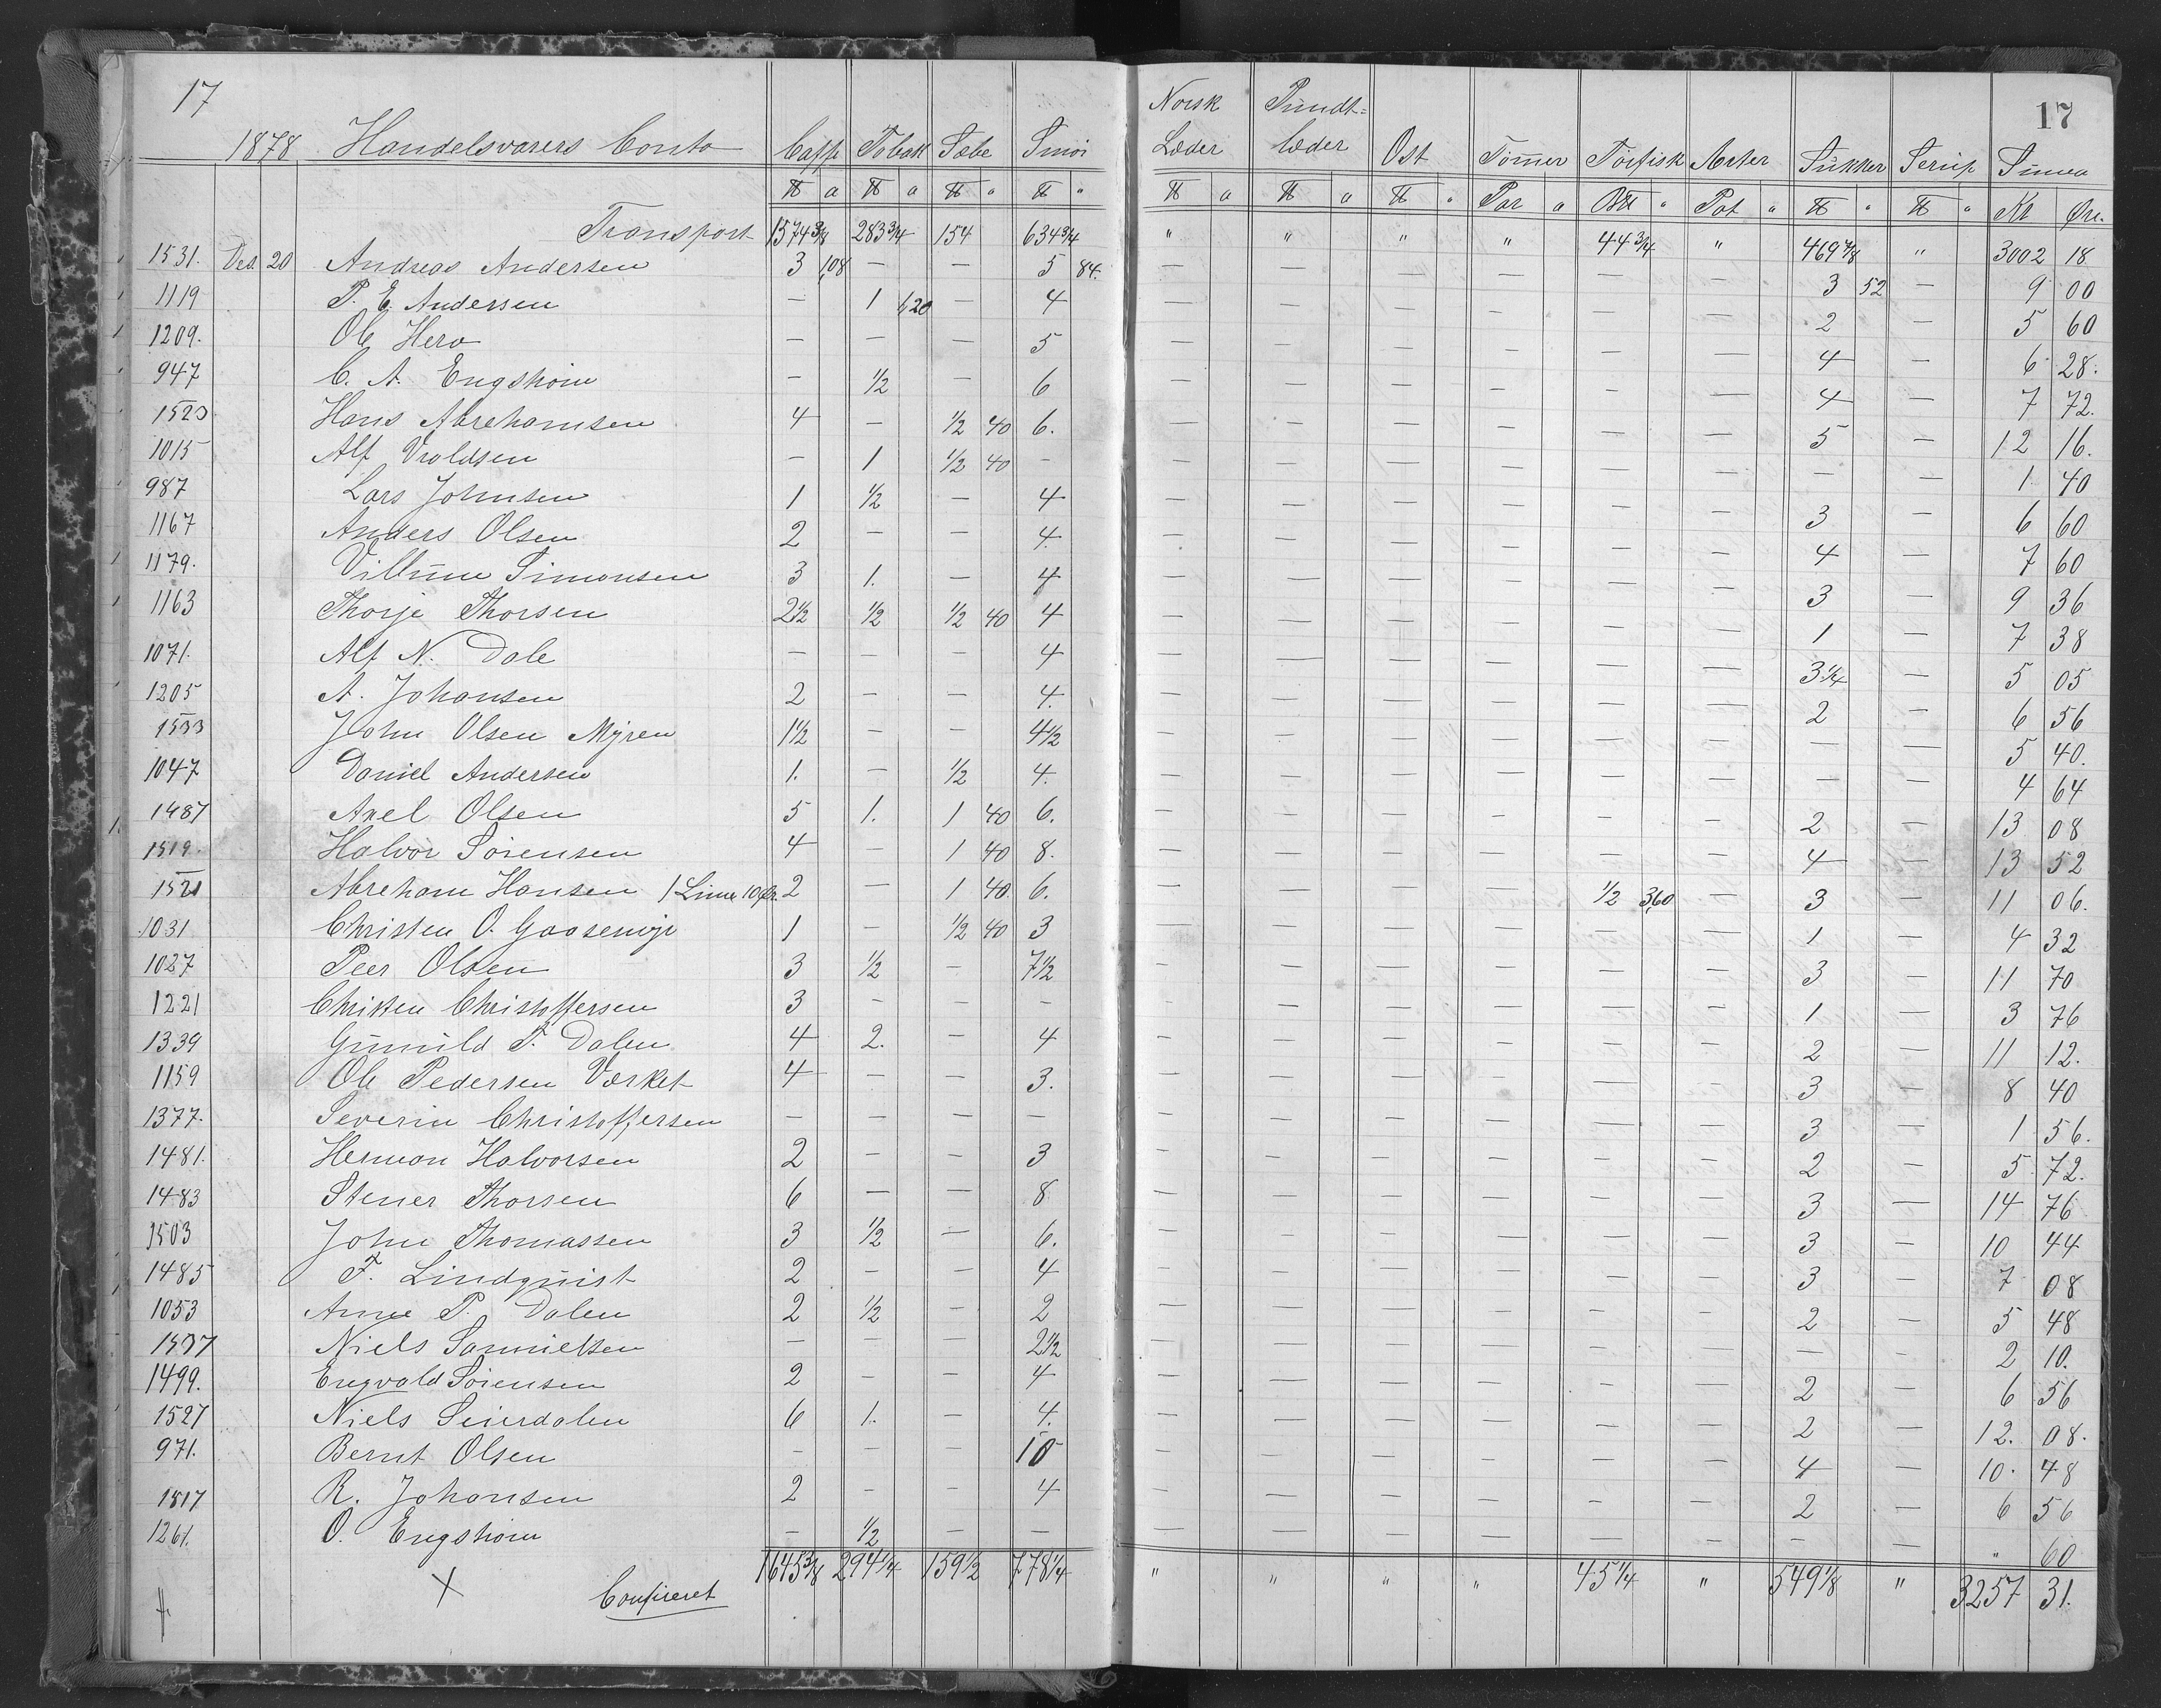 17 17
1878 Handelsvarers Conto Caffe Tobak Sæbe Smör Norsk Læder Pundt= læder Ost Tömmer Törfisk Ærter Sukker Serup Suma
℔ a ℔ a ℔ " ℔ " ℔ a ℔ a ℔ " Par a a Pot " ℔ " ℔ " Kr Øre.
Transport 1574 3/8 283 3/4 154 634 3/4 " " " " 44 3/4 " 469 7/8 " 3002 18
1531. Des. 20 Andreas Andersen 3 1,08 — — 5 84. — — — — — — 3 52 — 9 00
1119 P. E. Andersen — 1 1,20 — 4 — — — — — — 2 — 5 60
1209. Ole Hero — — — 5 — — — — — — 4 — 6 28.
947 C. A. Engström — 1/2 — 6 — — — — — — 4 — 7 72.
1523 Hans Abrehamsen 4 — 1/2 40 6. — — — — — — 5 — 12 16.
1015 Alf Vroldsen — 1 1/2 40 — — — — — — — — — 1 40
987 Lars Johnsen 1 1/2 — 4 — — — — — — 3 — 6 60
1167 Anders Olsen 2 — — 4. — — — — — — 4 — 7 60
1179. Villum Simonsen 3 1. — 4 — — — — — — 3 — 9 36
1163 Thorje Thorsen 2 1/2 1/2 1/2 40 4 — — — — — — 1 — 7 38
1071. Alf N. Dale — — — 4 — — — — — — 3 1/4 — 5 05
1205 A. Johansen 2 — — 4. — — — — — — 2 — 6 56
1533 John Olsen Myren 1 1/2 — — 4 1/2 — — — — — — — — 5 40.
1047 Daniel Andersen 1. — 1/2 4. — — — — — — — — 4 64
1487 Axel Olsen 5 1. 1 40 6. — — — — — — 2 — 13 08
1519. Halvor Sörensen 4 — 1 40 8. — — — — — — 4 — 13 52
1521 Abreham Hansen 1 Lime 10 Ør. 2 — 1 40. 6. — — — — 1/2 3,60 — 3 — 11 06.
1031 Christen O. Gaasemyr 1 — 1/2 40 3 — — — — — — 1 — 4 32
1027 Peer Olsen 3 1/2 — 7 1/2 — — — — — — 3 — 11 70
1221 Christen Christoffersen 3 — — — — — — — — — 1 — 3 76
1339 Gunnild T. Dalen 4 2. — 4 — — — — — — 2 — 11 12.
1159 Ole Pedersen Værket 4 — — 3. — — — — — — 3 — 8 40
1377. Severin Christoffersen — — — — — — — — — — 3 — 1 56.
1481. Herman Halvorsen 2 — — 3 — — — — — — 2 — 5 72.
1483 Stener Thorsen 6 — — 8 — — — — — — 3 — 14 76
1503 John Thomassen 3 1/2 — 6. — — — — — — 3 — 10 44
1485 F. Lindquist 2 — — 4 — — — — — — 3 — 7 08
1053 Anne P. Dalen 2 1/2 — 2 — — — — — — 2 — 5 48
1537 Niels Samuelsen — — — 2 1/2 — — — — — — — — 2 10.
1499. Engvald Sörensen 2 — — 4 — — — — — — 2 — 6 56
1527 Niels Seierdalen 6 1. — 4. — — — — — — 2 — 12. 08.
971. Bernt Olsen — — — 10 — — — — — — 4 — 10. 48
1517 R. Johansen 2 — — 4 — — — — — — 2 — 6 56
1261. O. Engström — 1/2 — — — — — — — — — — " 60
1645 3/8 294 1/4 159 1/2 778 1/4 " " " " 45 1/4 " 549 1/8 " 3257 31.
X Confireret